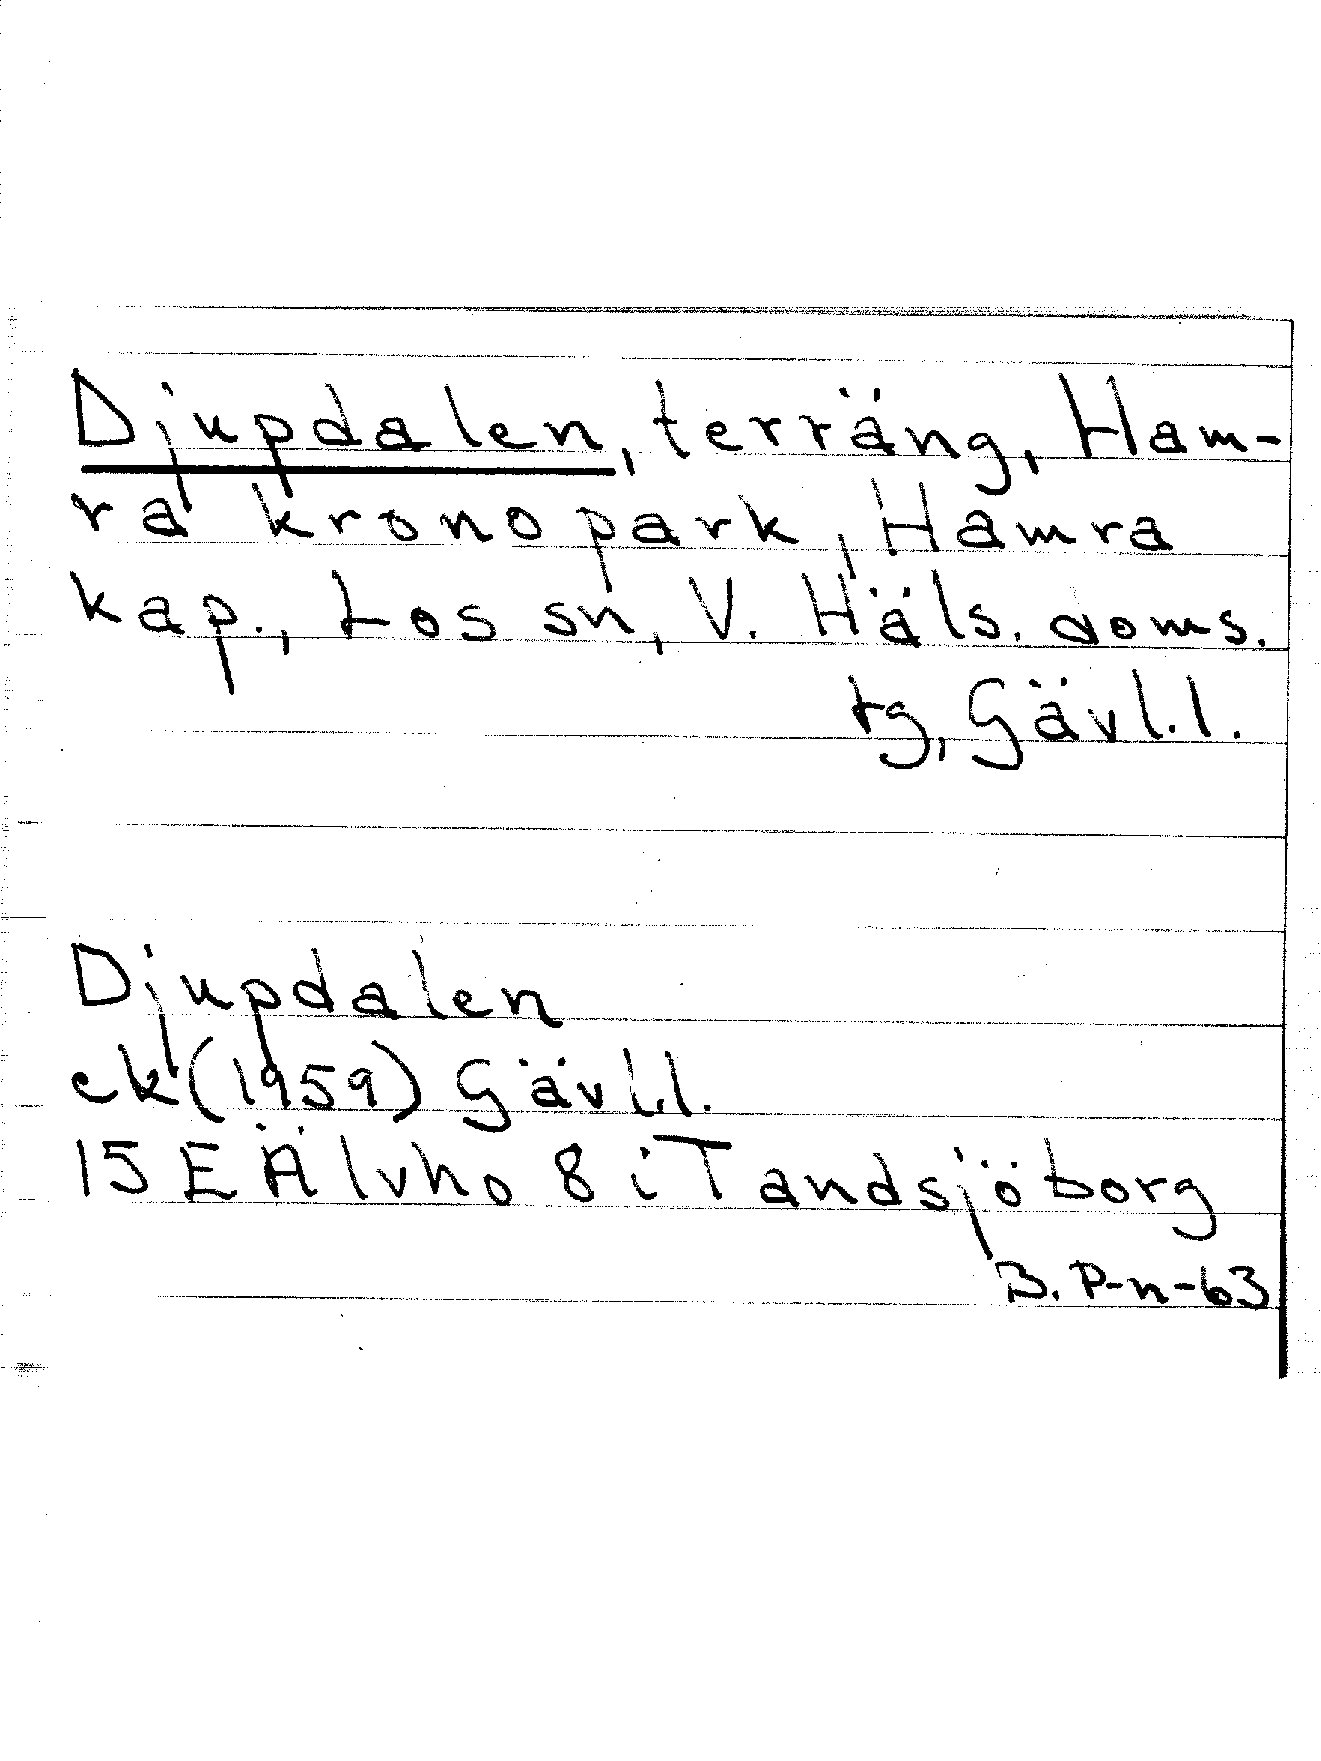 Djupdalen, terräng, Ham-
ra kronopark, Hamra
kap., Los sn, V. Häls. doms.
tg, Gävl.l.
Djupdalen
ek (1959) Gävl.l.
15 E Älvho 8 i Tandsjöborg
B. P-n-63